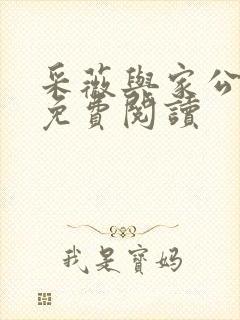 采薇與家公
免費閱讀
我是寶媽